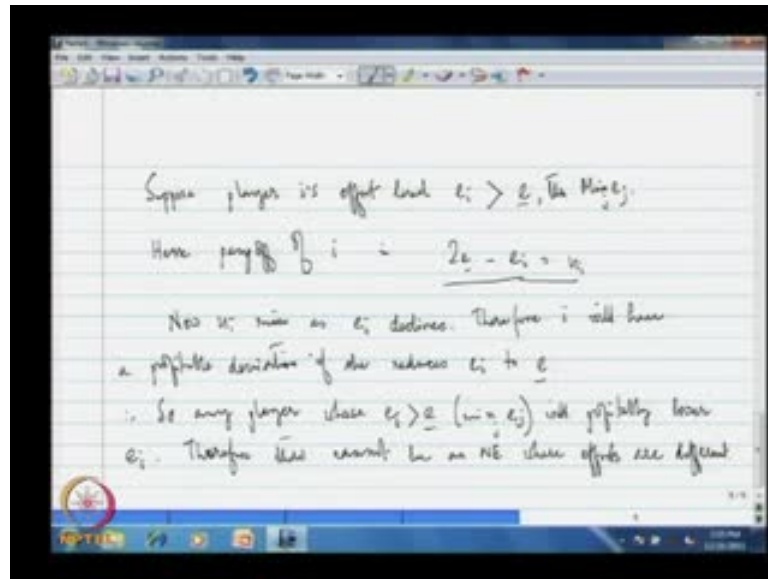 Page Width
Suppose player i's effort level eᵢ > e̲, the Min eⱼ.
Hence payoff of i is 2e̲ - eᵢ = uᵢ
Now uᵢ rises as eᵢ declines. Therefore i will have
a profitable deviation if she reduces eᵢ to e̲
∴ So any player whose eᵢ > e̲ (min eⱼ) will profitably lower
eᵢ. Therefore there cannot be an NE where efforts are different
NPTEL